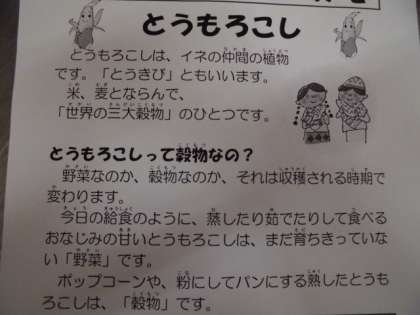 とうもろこし
とうもろこしは、イネの仲間の植物
です。「とうきび」ともいいます。
米、麦とならんで、
「世界の三大穀物」のひとつです。
とうもろこしって穀物なの？
野菜なのか、穀物なのか、それは収穫される時期で
変わります。
今日の給食のように、蒸したり茹でたりして食べる
おなじみの甘いとうもろこしは、まだ育ちきってい
ない「野菜」です。
ポップコーンや、粉にしてパンにする熟したとうも
ろこしは、「穀物」です。